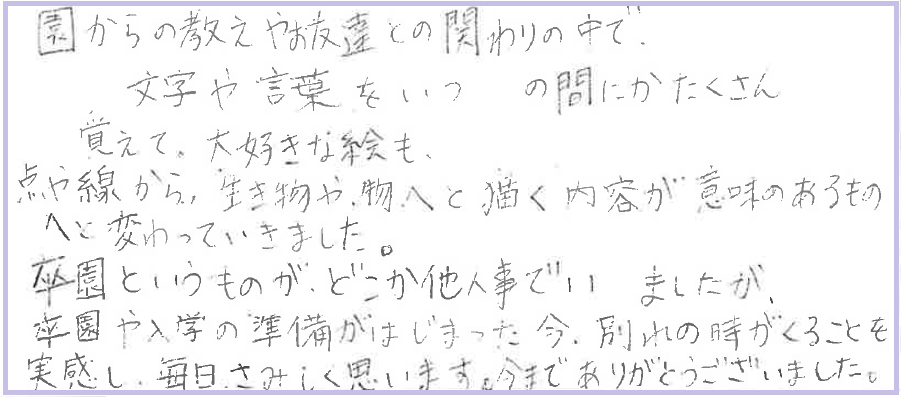 園からの教えやお友達との関わりの中で、
文字や言葉をいつ の間にかたくさん
覚えて。大好きな絵も、
点や線から、生き物や、物へと描く内容が意味のあるもの
へと変わっていきました。
卒園というものが、どこか他人事でい ましたが、
卒園や入学の準備がはじまった今、別れの時がくることを
実感し、毎日、さみしく思います。今までありがとうございました。